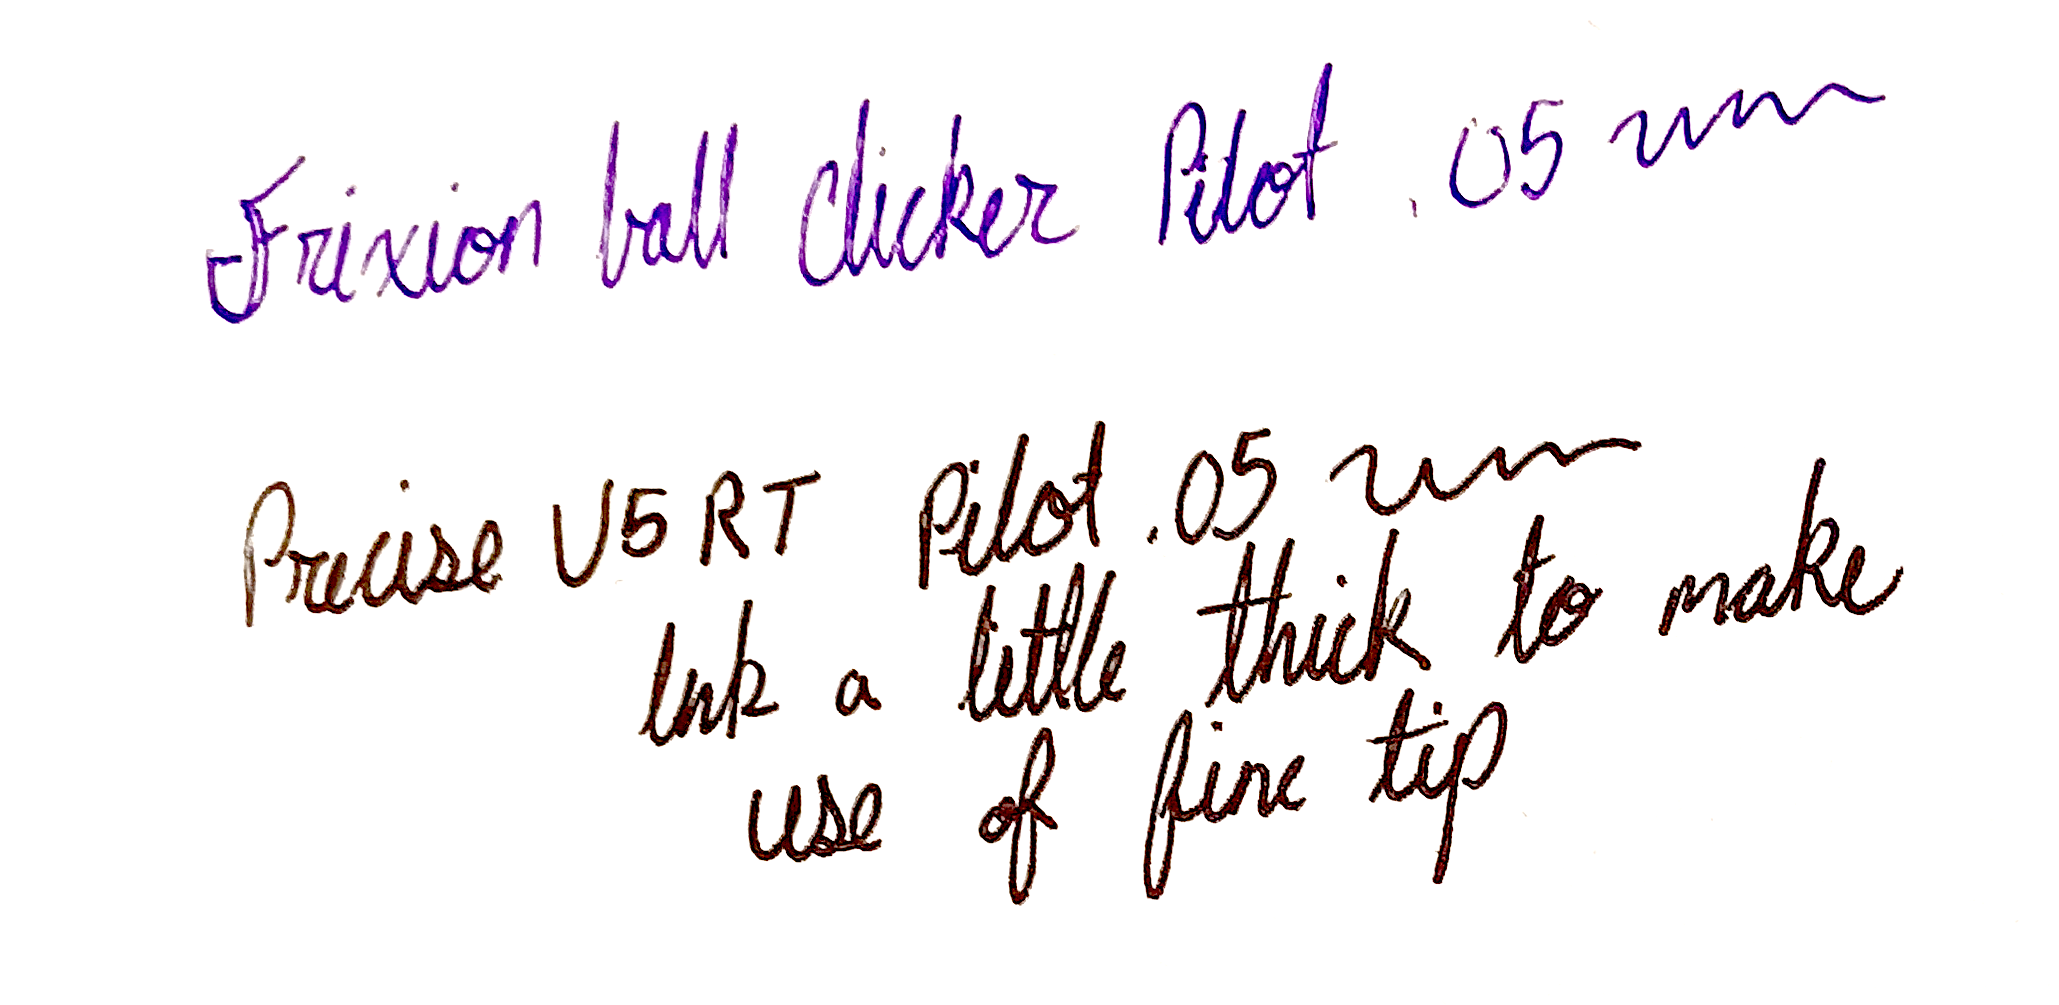 Frixion ball clicker Pilot .05 mm
Precise V5 RT Pilot .05 mm
Ink a little thick to make
use of fine tip